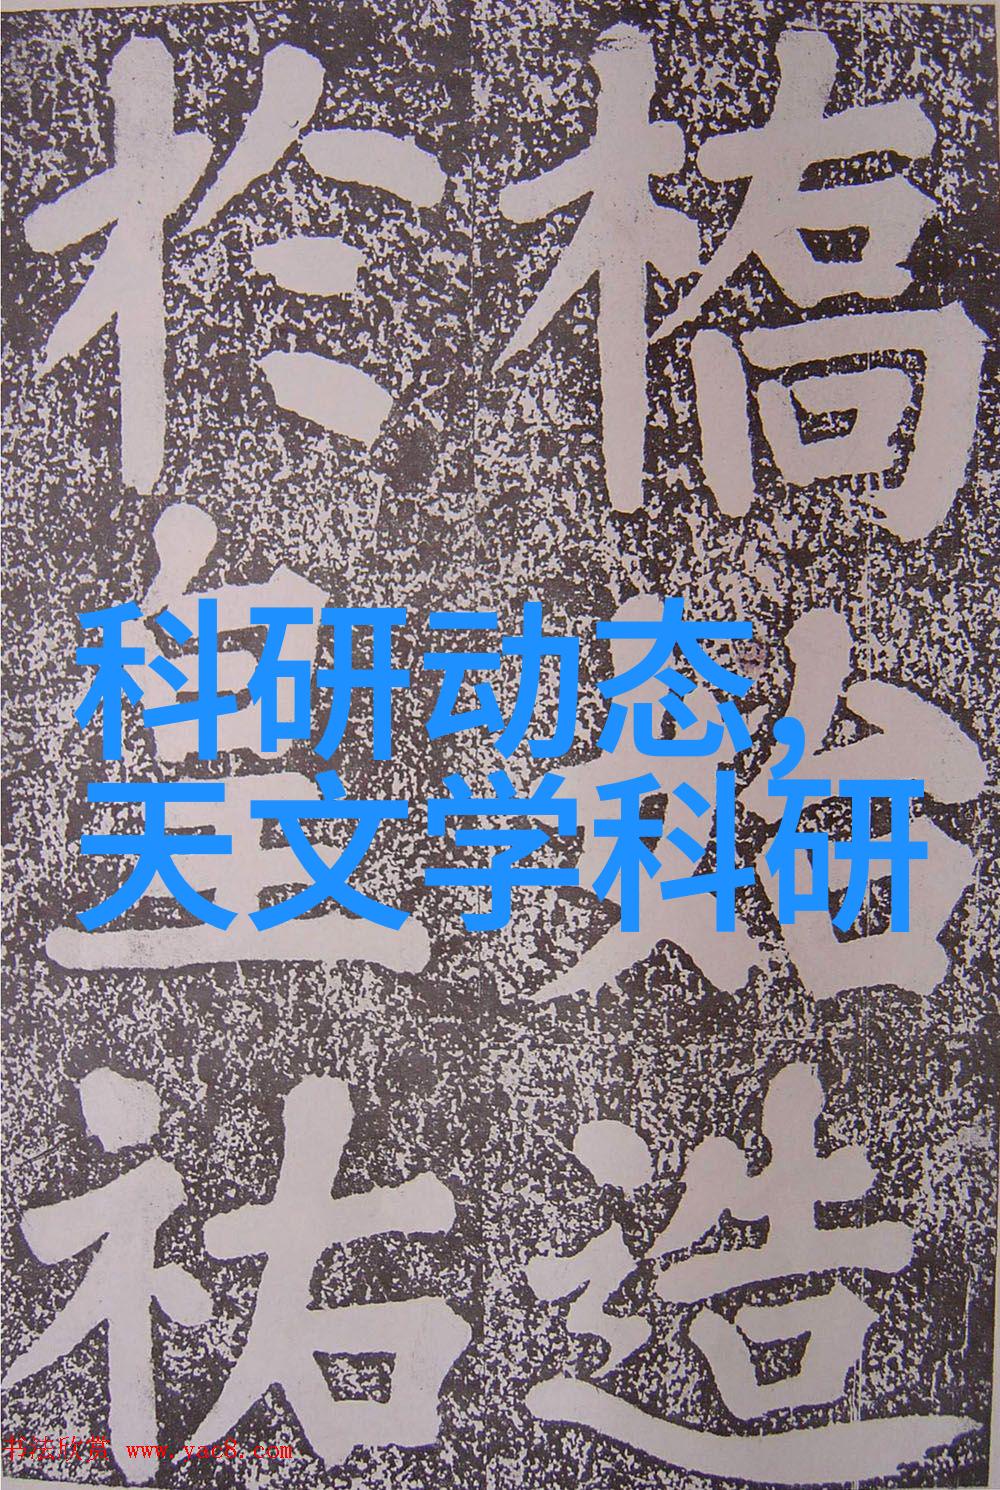 橋始造
於皇祐
科研动态,
天文学科研
书法欣赏 www.yac8.com